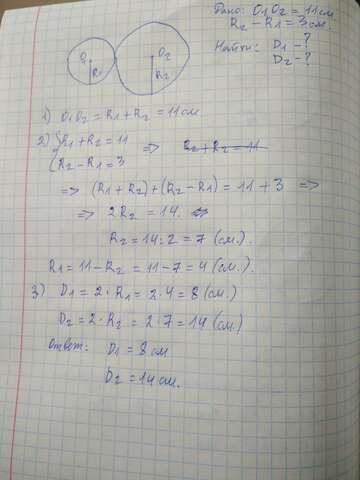 Дано: O1O2 = 11 см
R2 - R1 = 3 см.
Найти: D1 - ?
D2 - ?
O1 O2
R1 R2
1) O1O2 = R1 + R2 = 11 см
2) { R1 + R2 = 11 => R2 + R2 = 11
R2 - R1 = 3
=> (R1 + R2) + (R2 - R1) = 11 + 3 =>
=> 2R2 = 14. <=>
R2 = 14 : 2 = 7 (см.).
R1 = 11 - R2 = 11 - 7 = 4 (см.).
3) D1 = 2 · R1 = 2 · 4 = 8 (см.)
D2 = 2 · R2 = 2 · 7 = 14 (см.)
Ответ: D1 = 8 см
D2 = 14 см.